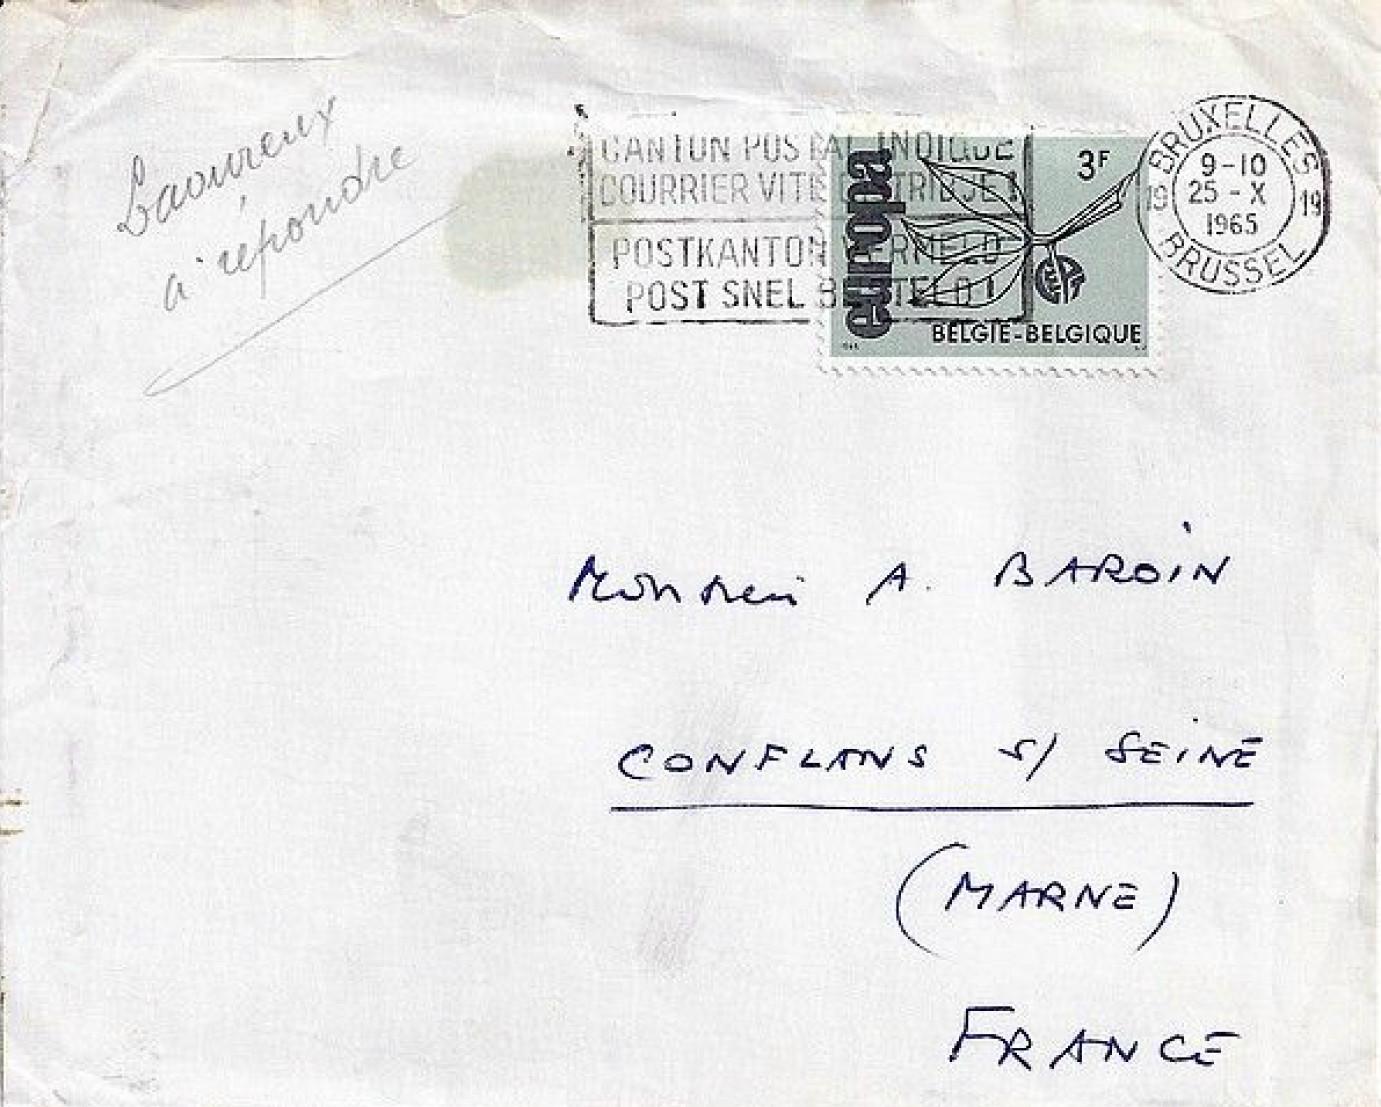 Laoureux
à répondre
CANTON POSTAL INDIQUE
COURRIER VITE TRIDJE !
POSTKANTON VERMELD
POST SNEL BESTELD !
europa
3F
CEPT
BELGIË-BELGIQUE
BRUXELLES
9-10
19 25 - X 19
1965
BRUSSEL
Monsieur A. BAROIN
CONFLANS S/ SEINE
(MARNE)
FRANCE